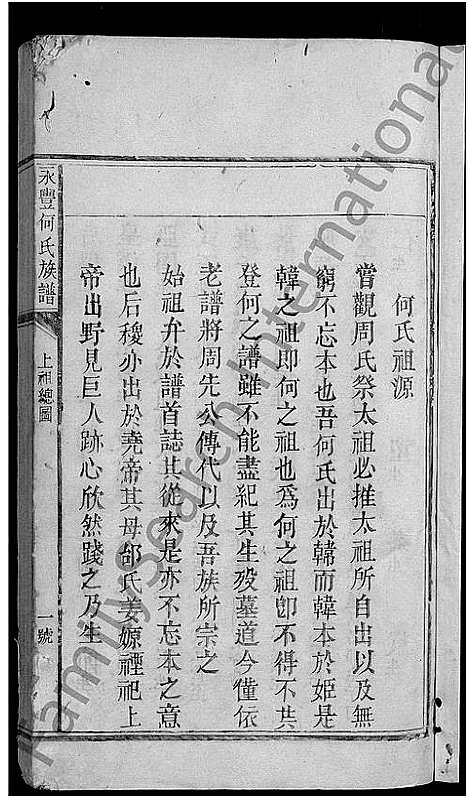 何氏祖源
嘗觀周氏祭太祖必推太祖所自出以及無
窮不忘本也吾何氏出於韓而韓本於姬是
韓之祖即何之祖也爲何之祖卽不得不共
登何之譜雖不能盡紀其生歿墓道今僅依
老譜將周先公傳代以及吾族所宗之
始祖弁於譜首誌其從來是亦不忘本之意
也后稷亦出於堯帝其母邰氏姜嫄禋祀上
帝出野見巨人跡心欣然踐之乃生
永豐何氏族譜
上祖總圖
一號
FamilySearch International